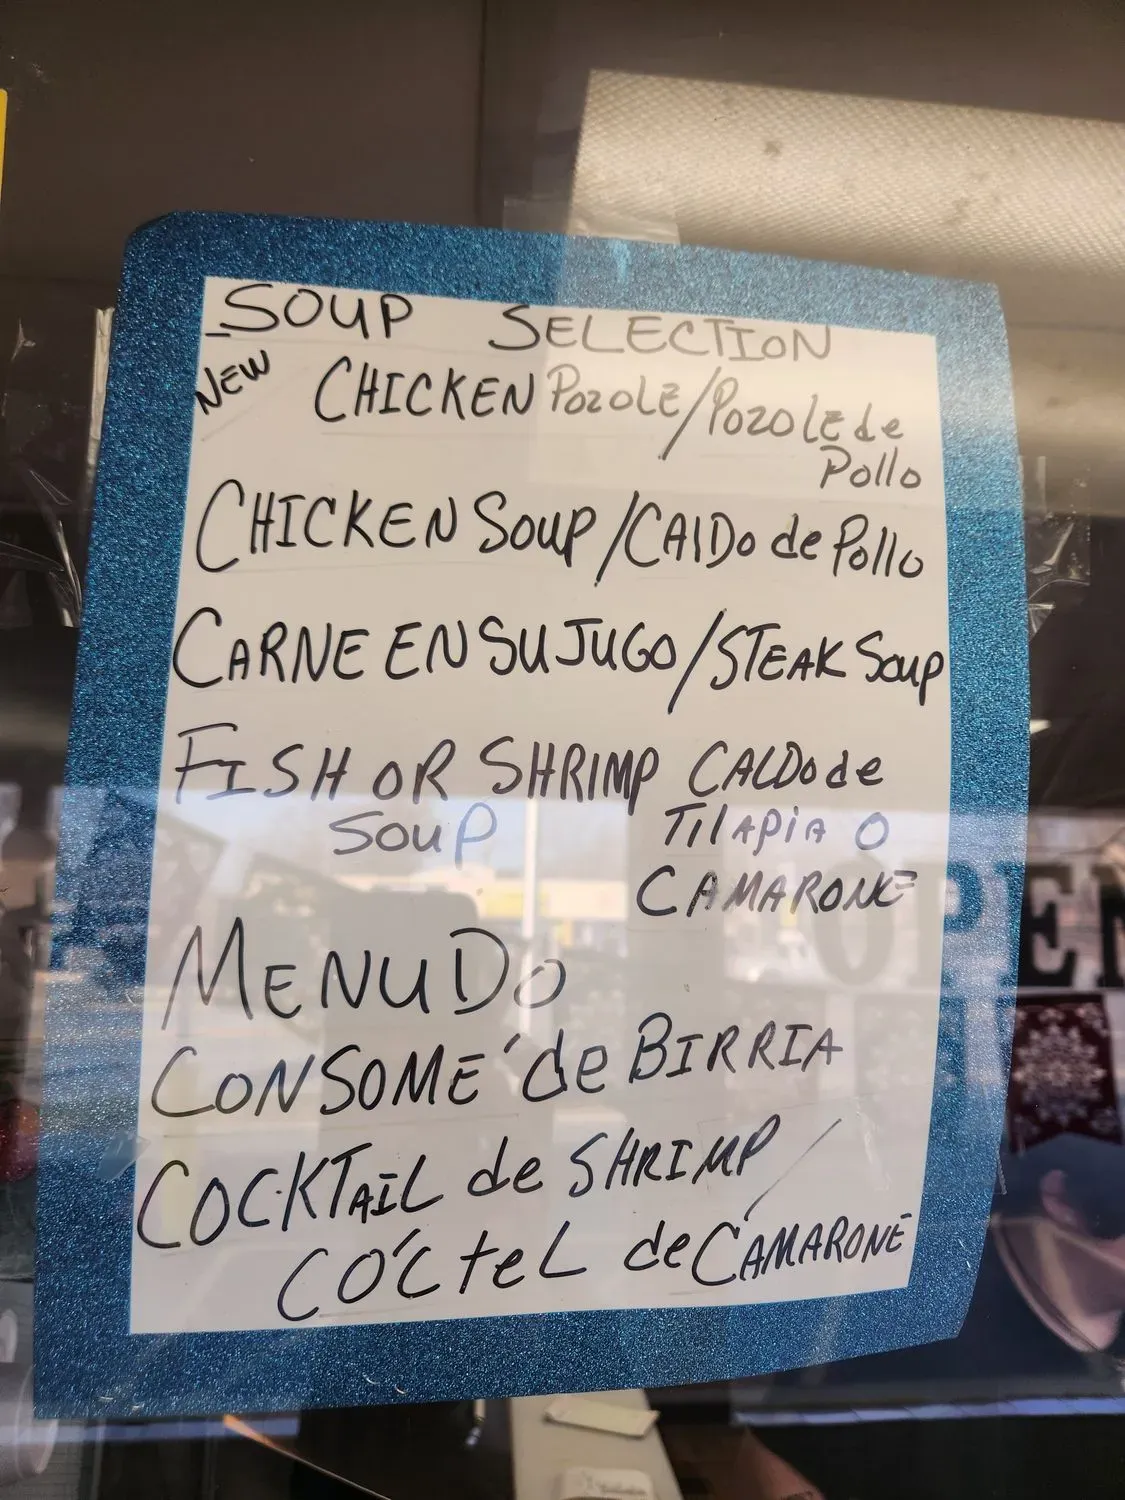 SOUP SELECTION
NEW CHICKEN POZOLE/POZOLE de
Pollo
CHICKEN SOUP/CAlDo de Pollo
CARNE EN SU JUGO/STEAK SOUP
FISH OR SHRIMP CALDO de
SOUP TilAPiA O
CAMARONE
MENUDO
CONSOMÉ de BIRRIA
COCKTAIL de SHRIMP/
CÓCteL de CAMARONE
OPEN